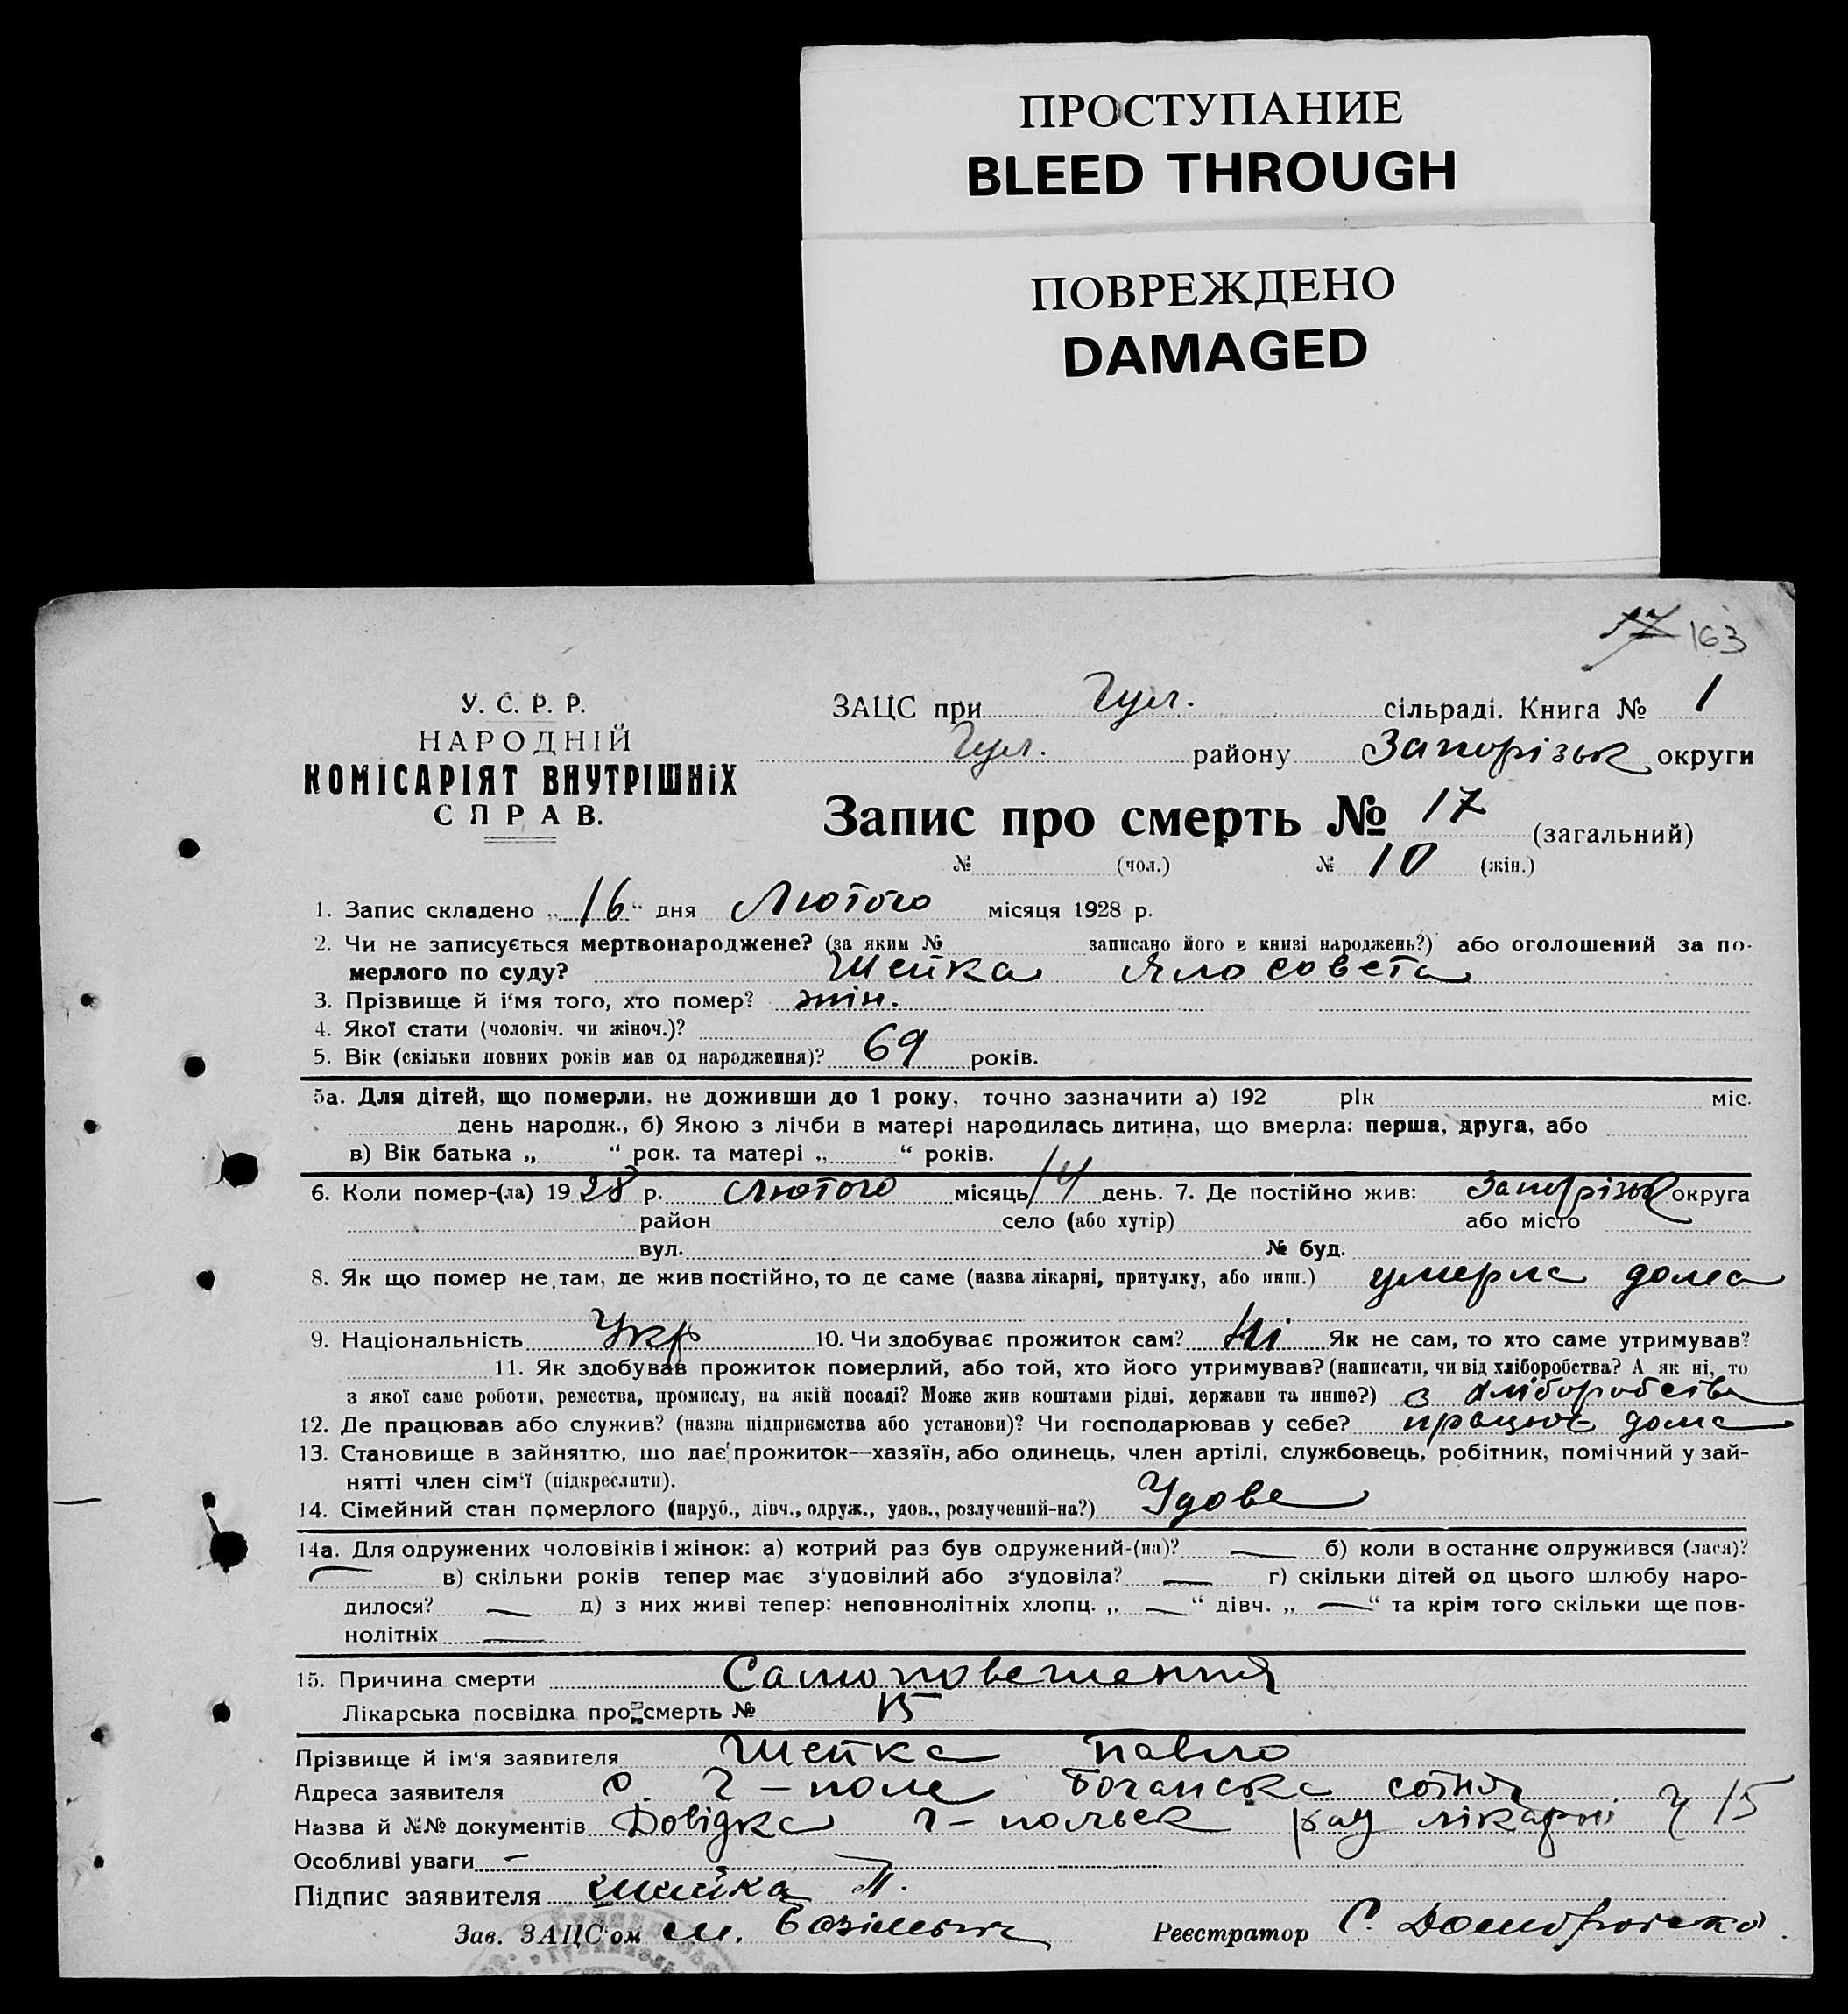 ПРОСТУПАНИЕ
BLEED THROUGH
ПОВРЕЖДЕНО
DAMAGED
17 163
У. С. Р. Р.
НАРОДНІЙ
КОМІСАРІЯТ ВНУТРІШНіХ
СПРАВ.
ЗАЦС при Гул. сільраді. Книга № 1
Гул. району Запорізьк округи
Запис про смерть № 17 (загальний)
№ (чол.) № 10 (жін.)
1. Запис складено „ 16 “ дня Лютого місяця 1928 р.
2. Чи не записується мертвонароджене? (за яким № записано його в книзі народжень?) або оголошений за по-
мерлого по суду? Шейка Ялосовета
3. Прізвище й і‘мя того, хто помер? жін.
4. Якої стати (чоловіч. чи жіноч.)?
5. Вік (скільки повних років мав од народження)? 69 років.
5а. Для дітей, що померли, не доживши до 1 року, точно зазначити а) 192 рік міс.
день народж., б) Якою з лічби в матері народилась дитина, що вмерла: перша, друга, або
в) Вік батька „ “ рок. та матері „ “ років.
6. Коли помер-(ла) 19 28 р. Лютого місяць 14 день. 7. Де постійно жив: Запорізьк округа
район село (або хутір) або місто
вул. № буд.
8. Як що помер не там, де жив постійно, то де саме (назва лікарні, притулку, або инш.) умерла дома
9. Національність Укр 10. Чи здобуває прожиток сам? Ні Як не сам, то хто саме утримував?
11. Як здобував прожиток померлий, або той, хто його утримував? (написати, чи від хліборобства? А як ні, то
з якої саме роботи, ремества, промислу, на якій посаді? Може жив коштами рідні, держави та инше?) з хліборобства
12. Де працював або служив? (назва підприємства або установи)? Чи господарював у себе? працює дома
13. Становище в зайняттю, що дає прожиток—хазяїн, або одинець, член артілі, службовець, робітник, помічний у зай-
нятті член сім‘ї (підкреслити).
14. Сімейний стан померлого (паруб., дівч., одруж., удов., розлучений-на?) Удова
14а. Для одружених чоловіків і жінок: а) котрий раз був одружений-(на)? — б) коли в останнє одружився (лася)?
— в) скільки років тепер має з‘удовілий або з‘удовіла? — г) скільки дітей од цього шлюбу наро-
дилося? — д) з них живі тепер: неповнолітніх хлопц. „ — “ дівч. „ — “ та крім того скільки ще пов-
нолітніх —
15. Причина смерти Самоповешення
Лікарська посвідка про смерть № 15
Прізвище й ім‘я заявителя Шейка Павло
Адреса заявителя с. Г-поле сотня
Назва й №№ документів Довідка Г-польск рай лікарні ч 15
Особливі уваги —
Підпис заявителя Шейка П.
Зав. ЗАЦС‘ом Реєстратор С.